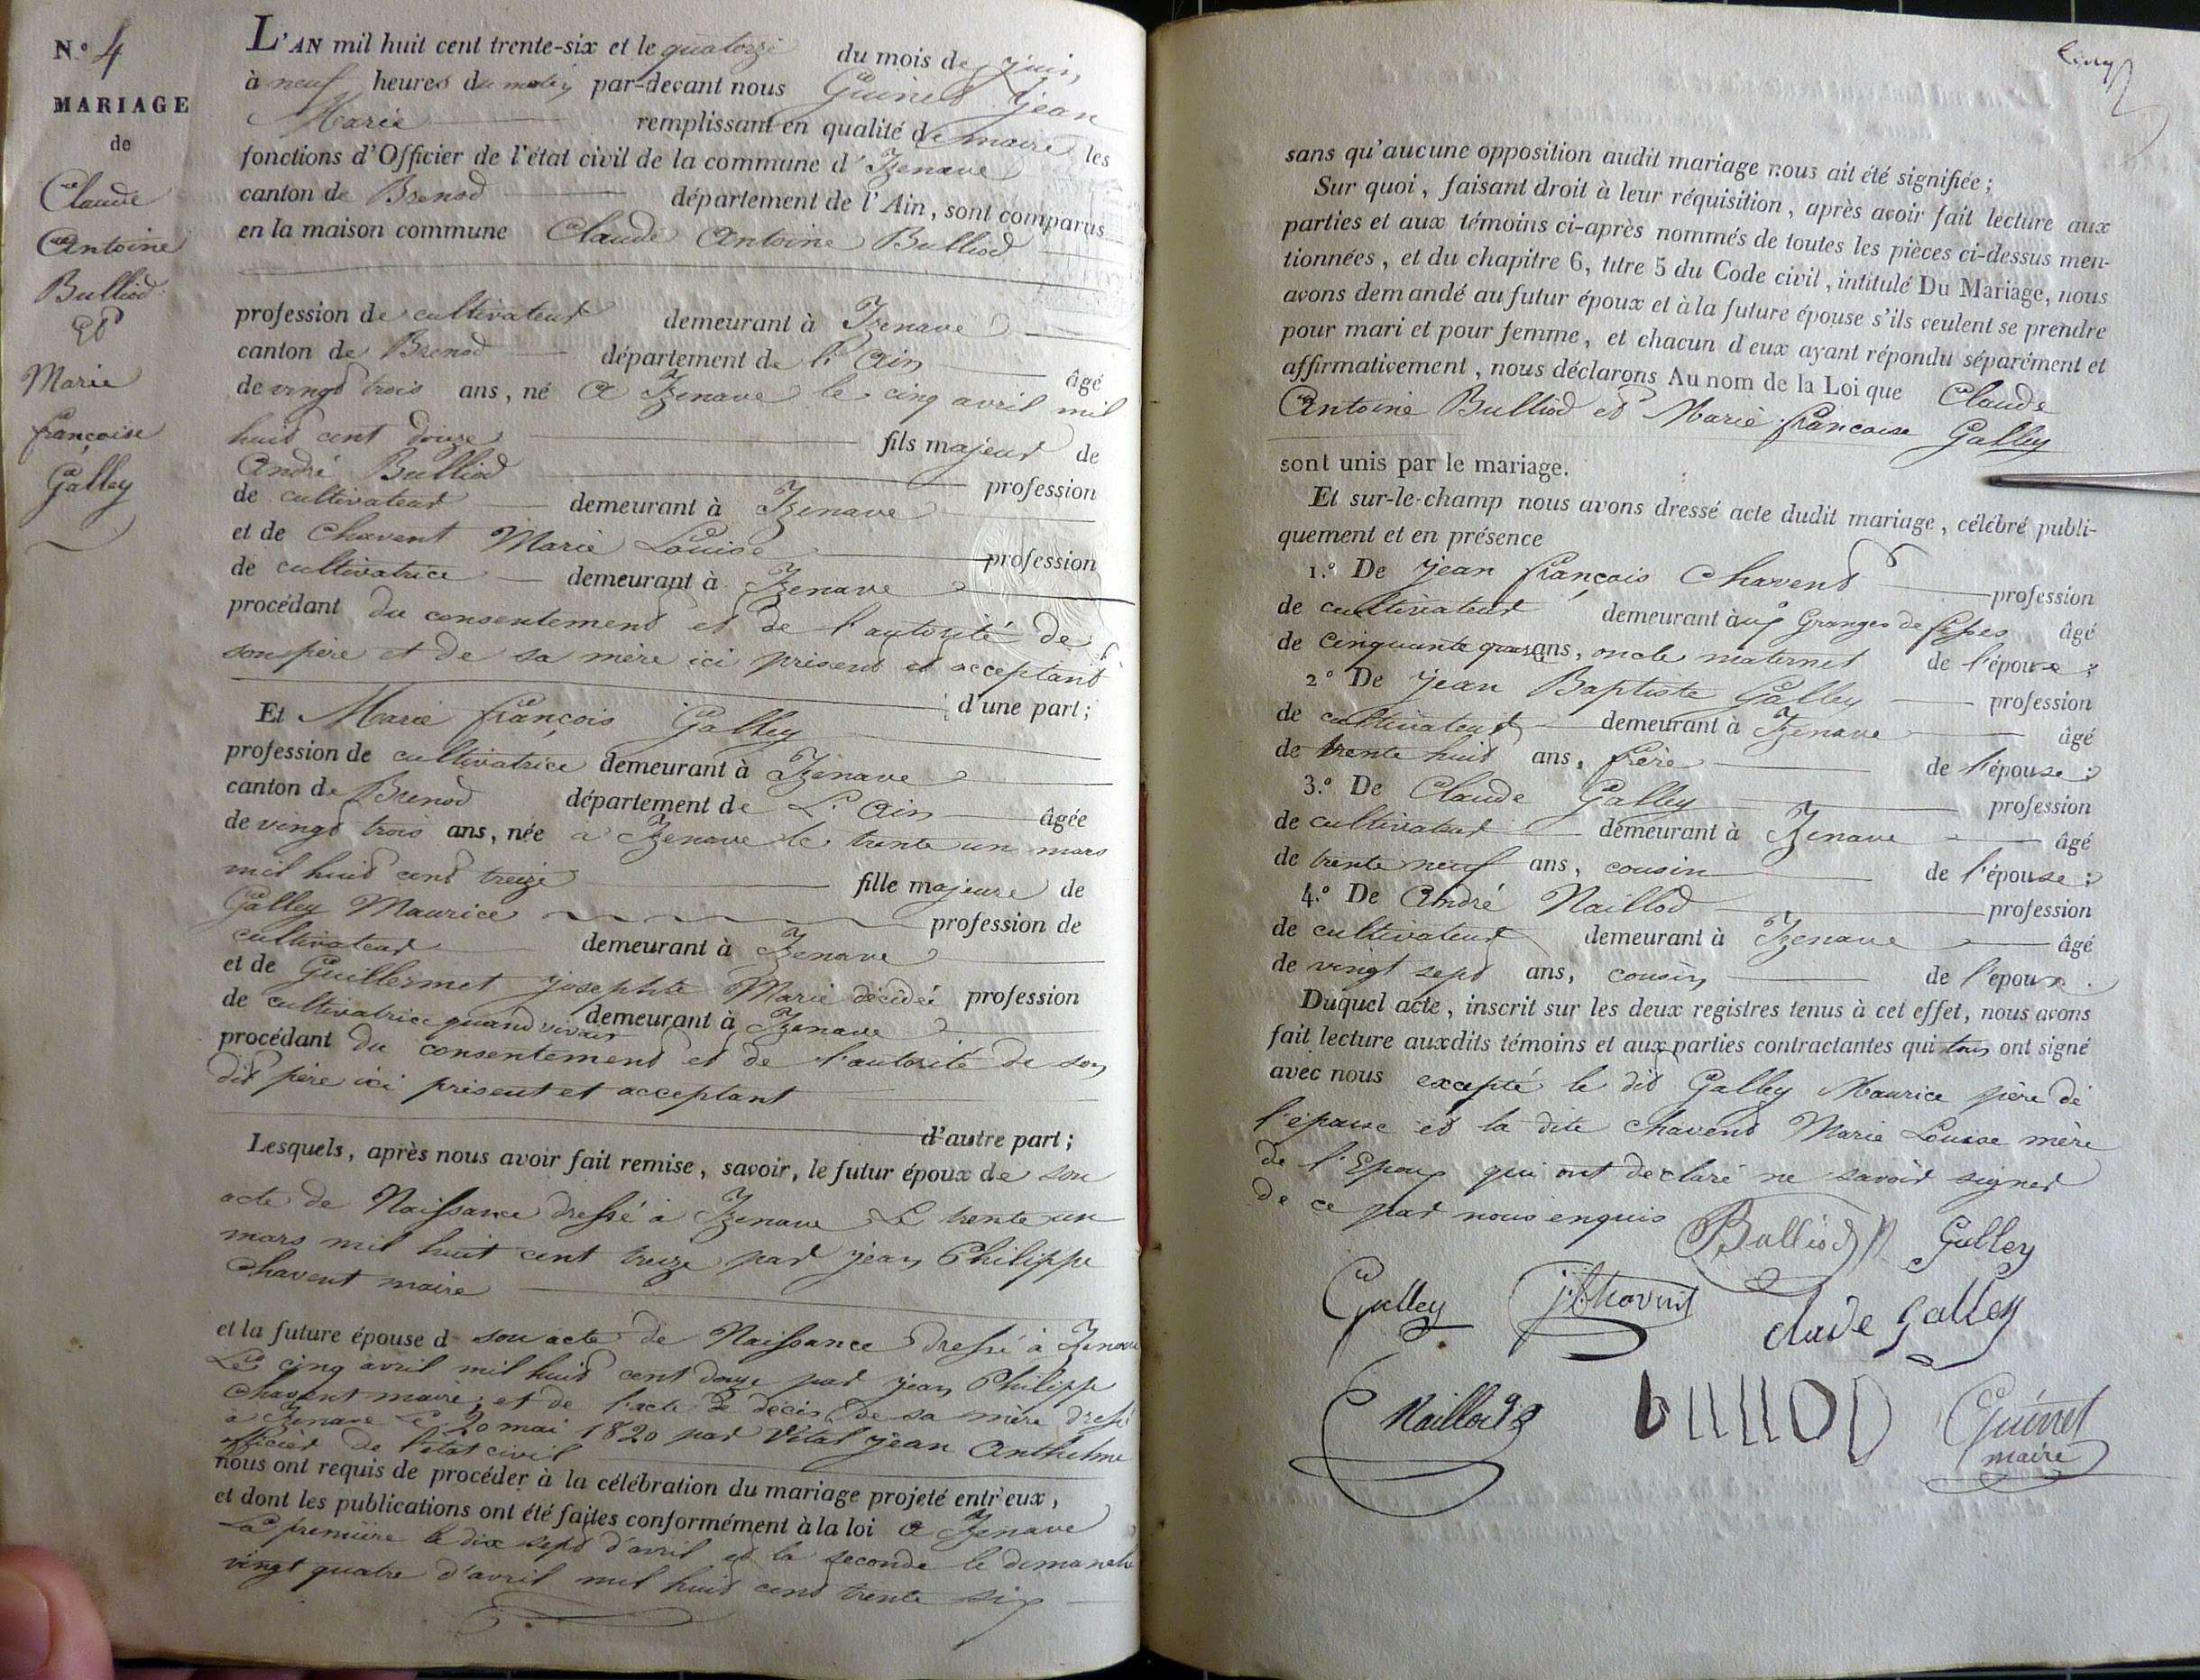 N.º 4
MARIAGE
de
Claude
Antoine
Bulliod
et
Marie
françoise
Galley
L'AN mil huit cent trente-six et le quatorze du mois de juin
à neuf heures du matin par-devant nous Guinet Jean
Marie remplissant en qualité de maire les
fonctions d'Officier de l'état civil de la commune d'Izenave
canton de Brenod département de l'Ain, sont comparus
en la maison commune Claude Antoine Bulliod
profession de cultivateur demeurant à Izenave
canton de Brenod département de l'Ain âgé
de vingt trois ans, né à Izenave le cinq avril mil
huit cent douze fils majeur de
André Bulliod profession
de cultivateur demeurant à Izenave
et de Chavent Marie Louise profession
de cultivatrice demeurant à Izenave
procédant du consentement et de l'autorité de
son père et de sa mère ici présent et acceptant
d'une part;
Et Marie françois Galley
profession de cultivatrice demeurant à Izenave
canton de Brenod département de L'Ain âgée
de vingt trois ans, née a Izenave le trente un mars
mil huit cent treize fille majeure de
Galley Maurice profession de
cultivateur demeurant à Izenave
et de Guillermet josephte Marie décidée profession
de cultivatrice quand vivait demeurant à Izenave
procédant du consentement et de l'autorité de son
dit père ici présent et acceptant
d'autre part;
Lesquels, après nous avoir fait remise, savoir, le futur époux de son
acte de Naissance dressé à Izenave Le trente un
mars mil huit cent treize par jean Philippe
Chavent maire
et la future épouse d son acte de Naissance dressé à Izenave
Le cinq avril mil huit cent douze par jean Philippe
Chavent maire, et de l'acte de décès de sa mère dressé
à Izenave Le 20 mai 1820 par Vital jean Anthelme
officier de l'état civil
nous ont requis de procéder à la célébration du mariage projeté entr'eux,
et dont les publications ont été faites conformément à la loi à Izenave
La première le dix sept d'avril et la seconde le dimanche
vingt quatre d'avril mil huit cent trente six
cinq
sans qu'aucune opposition audit mariage nous ait été signifiée;
Sur quoi, faisant droit à leur réquisition, après avoir fait lecture aux
parties et aux témoins ci-après nommés de toutes les pièces ci-dessus men-
tionnées, et du chapitre 6, titre 5 du Code civil, intitulé Du Mariage, nous
avons demandé au futur époux et à la future épouse s'ils veulent se prendre
pour mari et pour femme, et chacun d'eux ayant répondu séparément et
affirmativement, nous déclarons Au nom de la Loi que Claude
Antoine Bulliod et Marie francoise Galley
sont unis par le mariage.
Et sur-le-champ nous avons dressé acte dudit mariage, célébré publi-
quement et en présence
1.º De jean françois Chavent profession
de cultivateur demeurant aux Granges de âgé
de cinquante ans, oncle maternel de l'époux;
2º De jean Baptiste Galley profession
de cultivateur demeurant à Izenave âgé
de trente huit ans, frère de l'épouse;
3.º De Claude Galley profession
de cultivateur demeurant à Izenave âgé
de trente neuf ans, cousin de l'épouse;
4.º De André Naillod profession
de cultivateur demeurant à Izenave âgé
de vingt sept ans, cousin de l'époux.
Duquel acte, inscrit sur les deux registres tenus à cet effet, nous avons
fait lecture auxdits témoins et aux parties contractantes qui tous ont signé
avec nous excepté le dit Galley Maurice père de
l'épouse et la dite Chavent Marie Louise mère
de l'Epoux qui ont declaré ne savoir signer
de ce par nous enquis
Bulliod Galley
Galley jfchavent clade galley
Naillod bulliod Guinet
maire